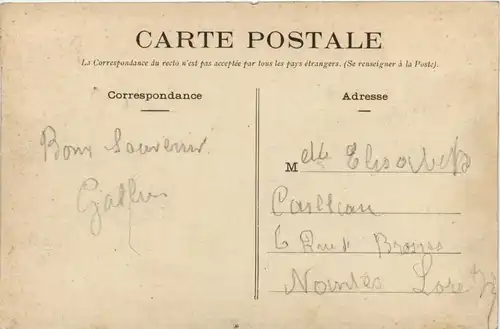 CARTE POSTALE
La Correspondance du recto n'est pas acceptée par tous les pays étrangers. (Se renseigner à la Poste).
Correspondance
Bons Souvenir
Adresse
Melle Elisabeth
6 Rue
Nantes Lore